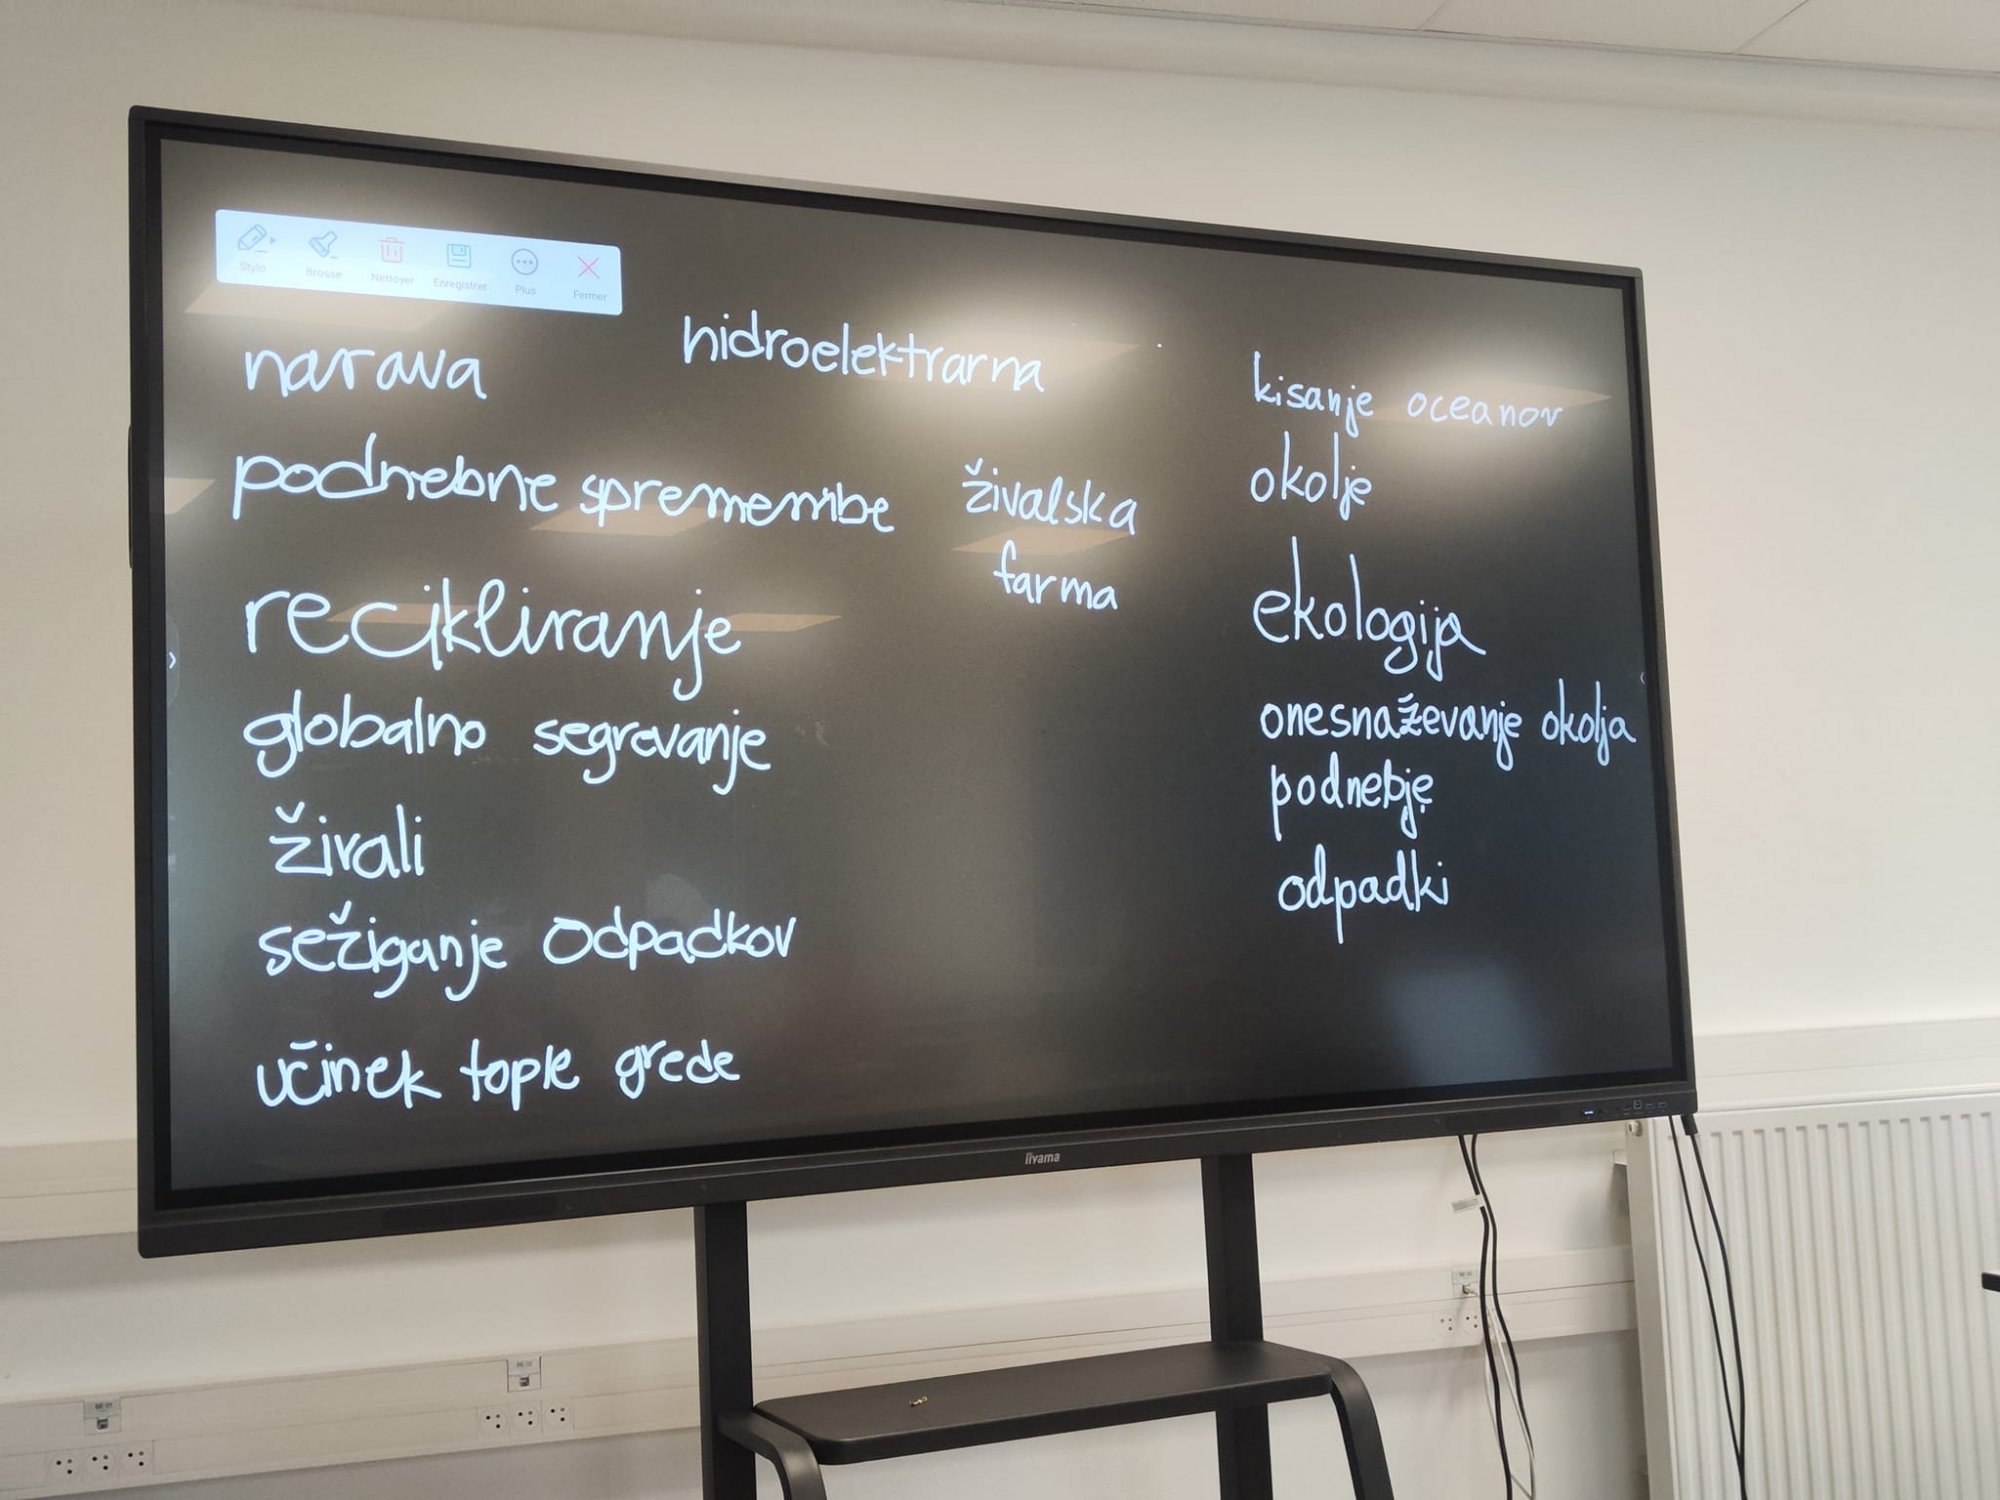 Stylo Brosse Nettoyer Enregistrer Plus Fermer
narava
podnebne spremembe
recikliranje
globalno segrevanje
živali
sežiganje odpadkov
učinek tople grede
hidroelektrarna
živalska
farma
kisanje oceanov
okolje
ekologija
onesnaževanje okolja
podnebje
odpadki
iiyama